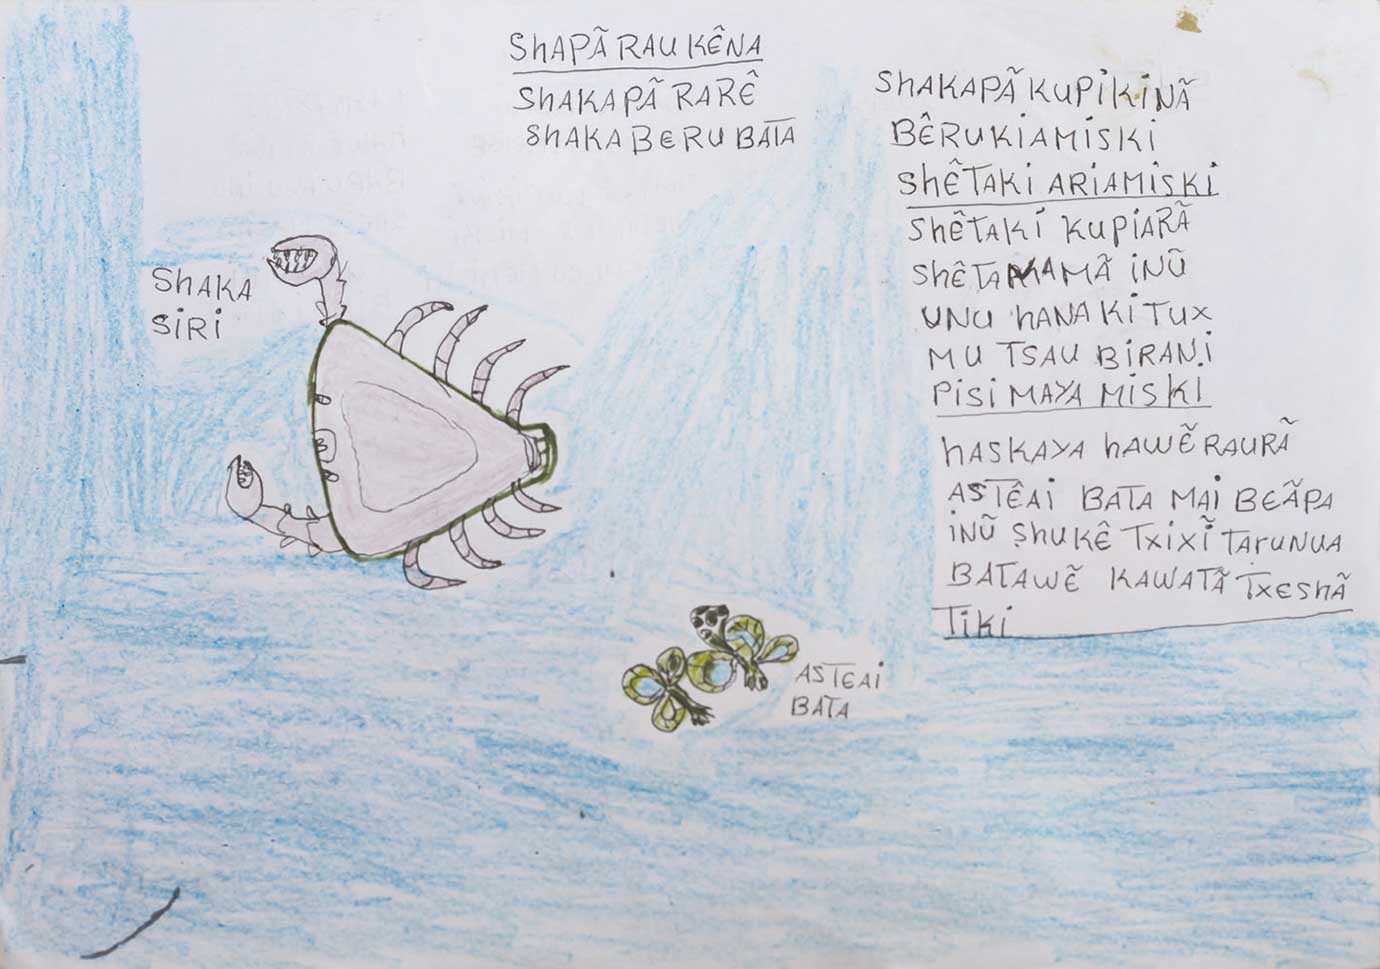 SHAPÃ RAU KÊNA
SHAKAPÃ RARÊ
SHAKA BERU BATA
SHAKAPÃ KUPIKINÃ
BÊRUKIAMISKI
SHÊTAKI ARIAMISKI
SHÊTAKI KUPIARÃ
SHÊTAMAMÃ INŨ
UNU HANAKI TUX
MU TSAU BIRANI
PISI MAYA MISKI
HASKAYA HAWẼ RAURÃ
ASTÊAI BATA MAI BEÃPA
INŨ SHUKÊ TXIXĨ TARUNUA
BATAWẼ KAWATÃ TXESHÃ
TIKI
SHAKA
SIRI
ASTEAI
BATA